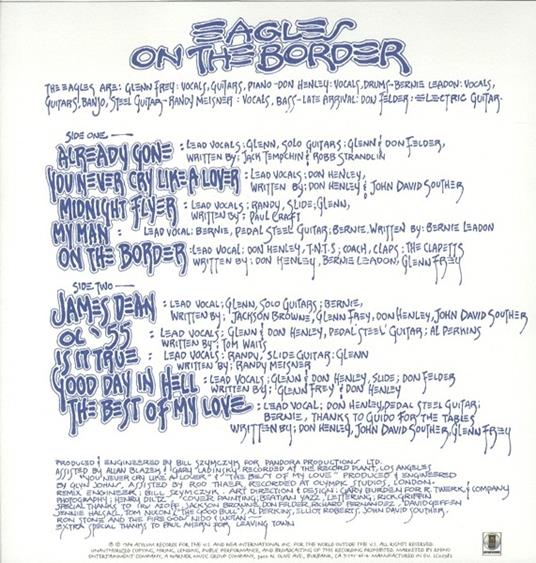 EAGLES
ON THE BORDER
THE EAGLES ARE: GLENN FREY: VOCALS, GUITARS, PIANO - DON HENLEY: VOCALS, DRUMS - BERNIE LEADON: VOCALS,
GUITARS, BANJO, STEEL GUITAR - RANDY MEISNER: VOCALS, BASS - LATE ARRIVAL: DON FELDER: ELECTRIC GUITAR.
SIDE ONE —
ALREADY GONE : LEAD VOCALS: GLENN, SOLO GUITARS: GLENN & DON FELDER,
WRITTEN BY: JACK TEMPCHIN & ROBB STRANDLIN
YOU NEVER CRY LIKE A LOVER : LEAD VOCALS: DON HENLEY,
WRITTEN BY: DON HENLEY & JOHN DAVID SOUTHER
MIDNIGHT FLYER : LEAD VOCALS: RANDY, SLIDE: GLENN,
WRITTEN BY: PAUL CRAFT
MY MAN : LEAD VOCAL: BERNIE, PEDAL STEEL GUITAR: BERNIE. WRITTEN BY: BERNIE LEADON
ON THE BORDER : LEAD VOCAL: DON HENLEY, T.N.T.S; COACH, CLAPS: THE CLAPETTS
WRITTEN BY: DON HENLEY, BERNIE LEADON, GLENN FREY
SIDE TWO —
JAMES DEAN : LEAD VOCAL: GLENN, SOLO GUITARS: BERNIE,
WRITTEN BY: JACKSON BROWNE, GLENN FREY, DON HENLEY, JOHN DAVID SOUTHER
OL' 55 : LEAD VOCALS: GLENN & DON HENLEY, PEDAL STEEL GUITAR: AL PERKINS
WRITTEN BY: TOM WAITS
IS IT TRUE : LEAD VOCALS: RANDY, SLIDE GUITAR: GLENN
WRITTEN BY: RANDY MEISNER
GOOD DAY IN HELL : LEAD VOCALS: GLENN & DON HENLEY, SLIDE: DON FELDER
WRITTEN BY: GLENN FREY & DON HENLEY
THE BEST OF MY LOVE : LEAD VOCAL: DON HENLEY, PEDAL STEEL GUITAR:
BERNIE, THANKS TO GUIDO FOR THE TABLES
WRITTEN BY: DON HENLEY, JOHN DAVID SOUTHER, GLENN FREY
PRODUCED & ENGINEERED BY BILL SZYMCZYK FOR PANDORA PRODUCTIONS LTD.
ASSISTED BY ALLAN BLAZEK & GARY LADINSKY RECORDED AT THE RECORD PLANT, LOS ANGELES
"YOU NEVER CRY LIKE A LOVER" & "THE BEST OF MY LOVE" PRODUCED & ENGINEERED
BY GLYN JOHNS, ASSISTED BY ROD THAER, RECORDED AT OLYMPIC STUDIOS, LONDON.
REMIX ENGINEER: BILL SZYMCZYK. ART DIRECTION & DESIGN: GARY BURDEN FOR R. TWERK & COMPANY
PHOTOGRAPHY: HENRY DILTZ, COVER PAINTING: BEATIEN YAZZ, LETTERING: RICK GRIFFIN
SPECIAL THANKS TO IRV AZOFF, JACKSON BROWNE, DON FELDER, RICHARD FERNANDEZ, DAVID GEFFEN
JENNIE HACALL, TOM NUCCIO ("THE GOOD BULL"), AL PERKINS, ELLIOT ROBERTS, JOHN DAVID SOUTHER.
RON STONE AND THE FIRE GOD/
EXTRA SPECIAL THANKS TO PAUL AHERN FOR LEAVING TOWN
℗ © 1974 ASYLUM RECORDS FOR THE U.S. AND WEA INTERNATIONAL INC. FOR THE WORLD OUTSIDE THE U.S. ALL RIGHTS RESERVED.
UNAUTHORIZED COPYING, HIRING, LENDING, PUBLIC PERFORMANCE, AND BROADCASTING OF THIS RECORDING PROHIBITED. MARKETED BY RHINO
ENTERTAINMENT COMPANY, A WARNER MUSIC GROUP COMPANY. 3400 W. OLIVE AVE, BURBANK, CA MANUFACTURED IN EU